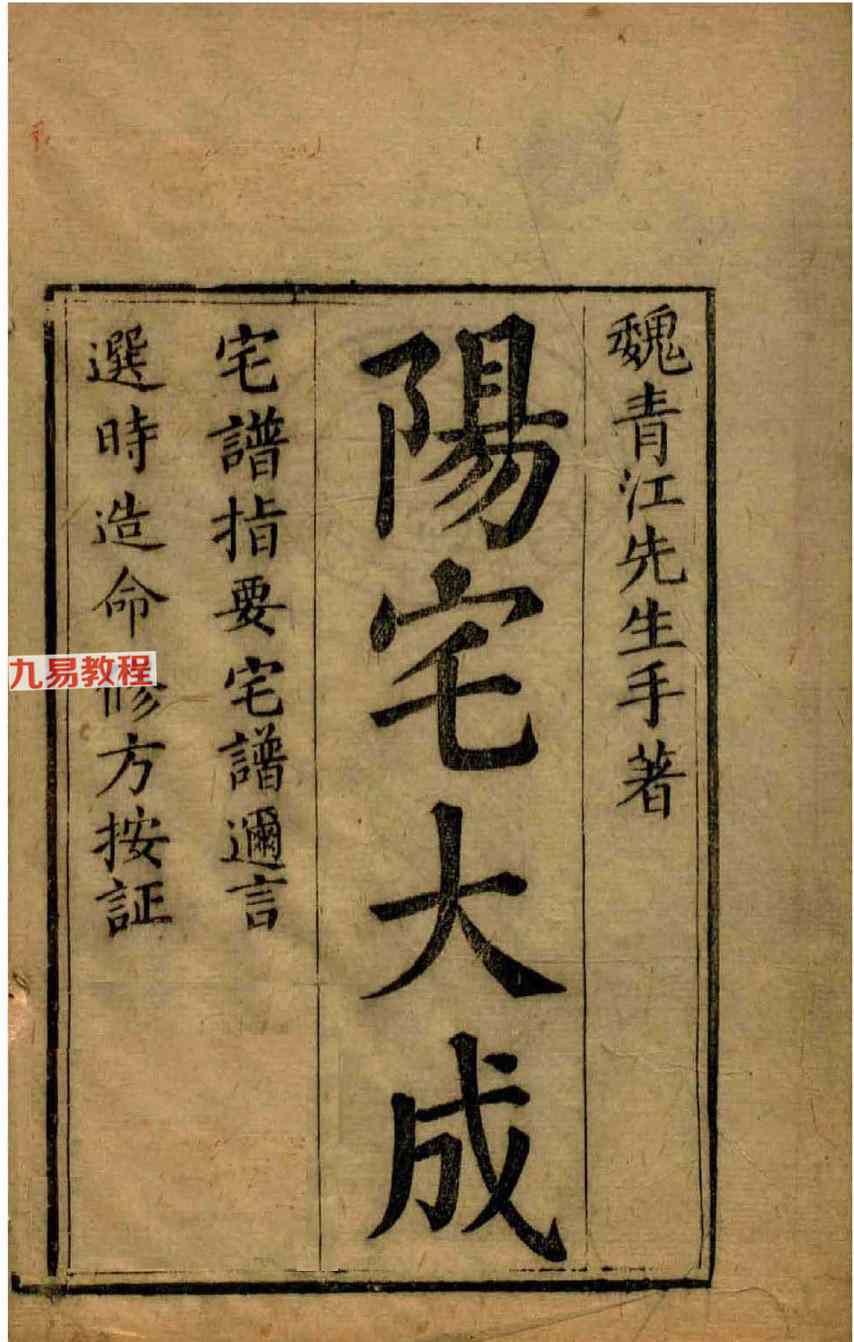 魏青江先生手著
陽宅大成
宅譜指要宅譜邇言
選時造命修方按証
九易教程